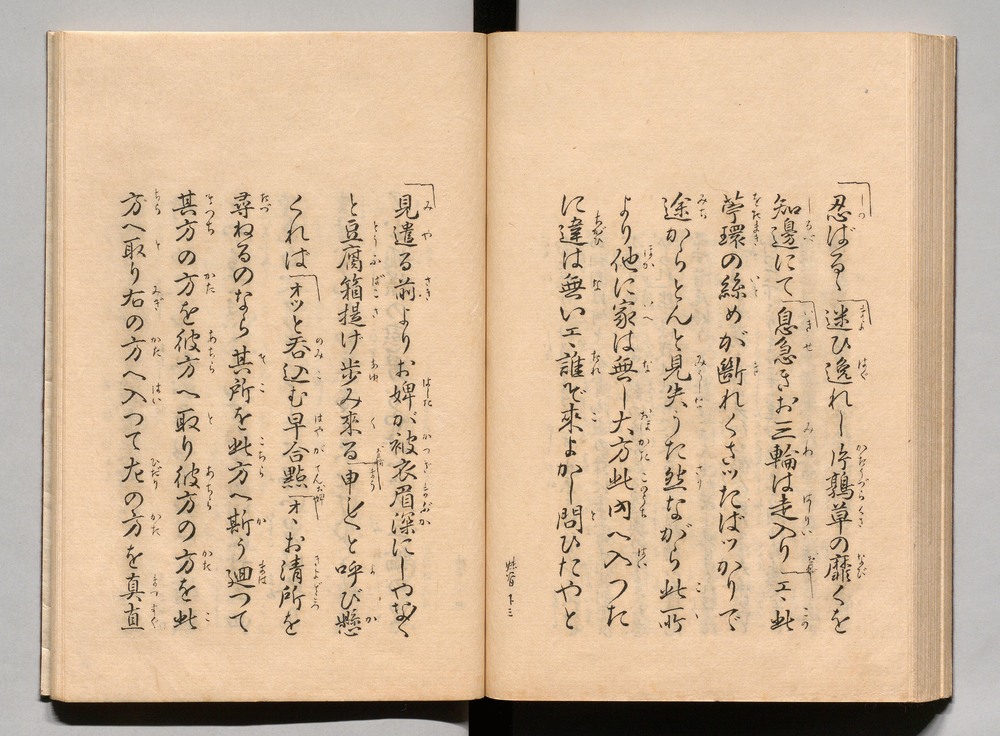 忍ばるゝ迷ひ逸れし片鶉草の靡くを
知邊にて息急きお三輪は走入りエヽ此
苧環の絲めが斷れくさッたばッかりで
途からとんと見失うた然ながら此所
より他に家は無し大方此内へ入つた
に違は無いエヽ誰ぞ來よかし問ひたやと
見遣る前よりお婢が被衣眉深にしやな〱
と豆腐箱提げ歩み來る申し〱と呼び懸
くればオッと呑込む早合點オヽお清所を
尋ねるのなら其所を此方へ斯う廻つて
其方の方を彼方へ取り彼方の方を此
方へ取り右の方へ入つて左の方を真直